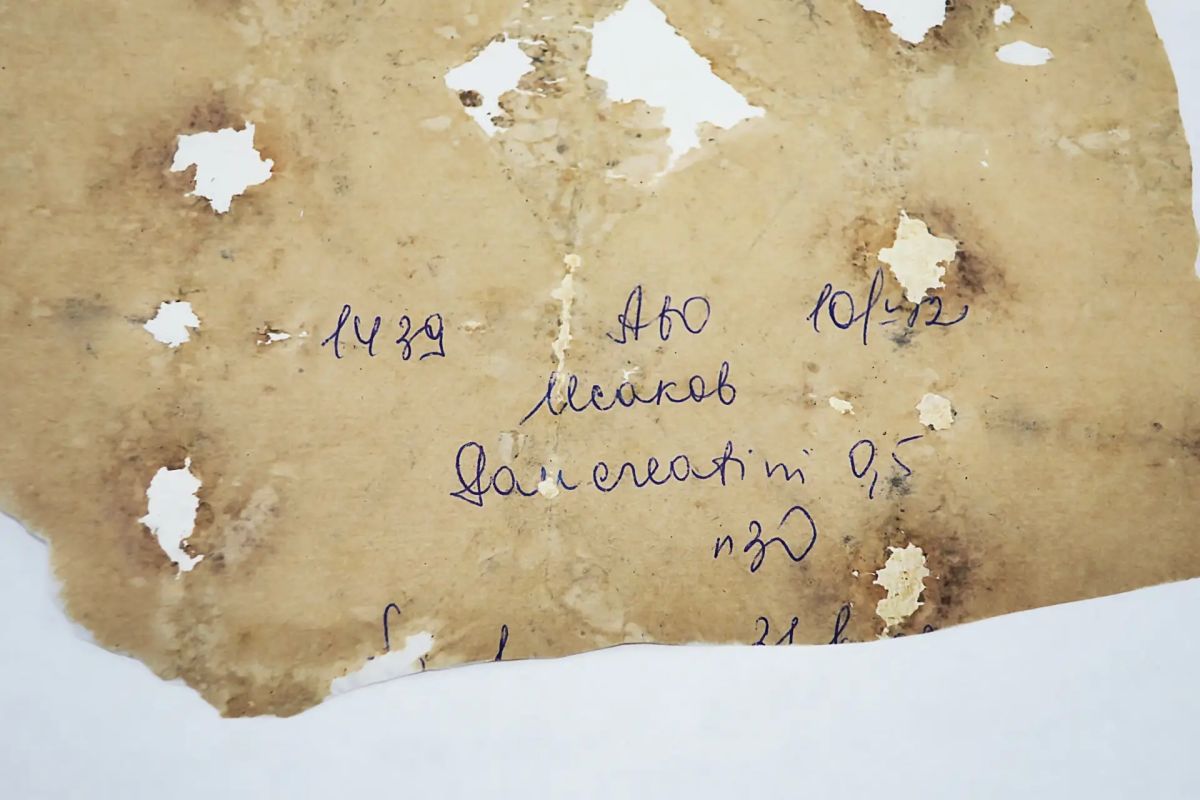 1439 АЮ 10/-42
Исаков
Pancreatini 0,5
n30